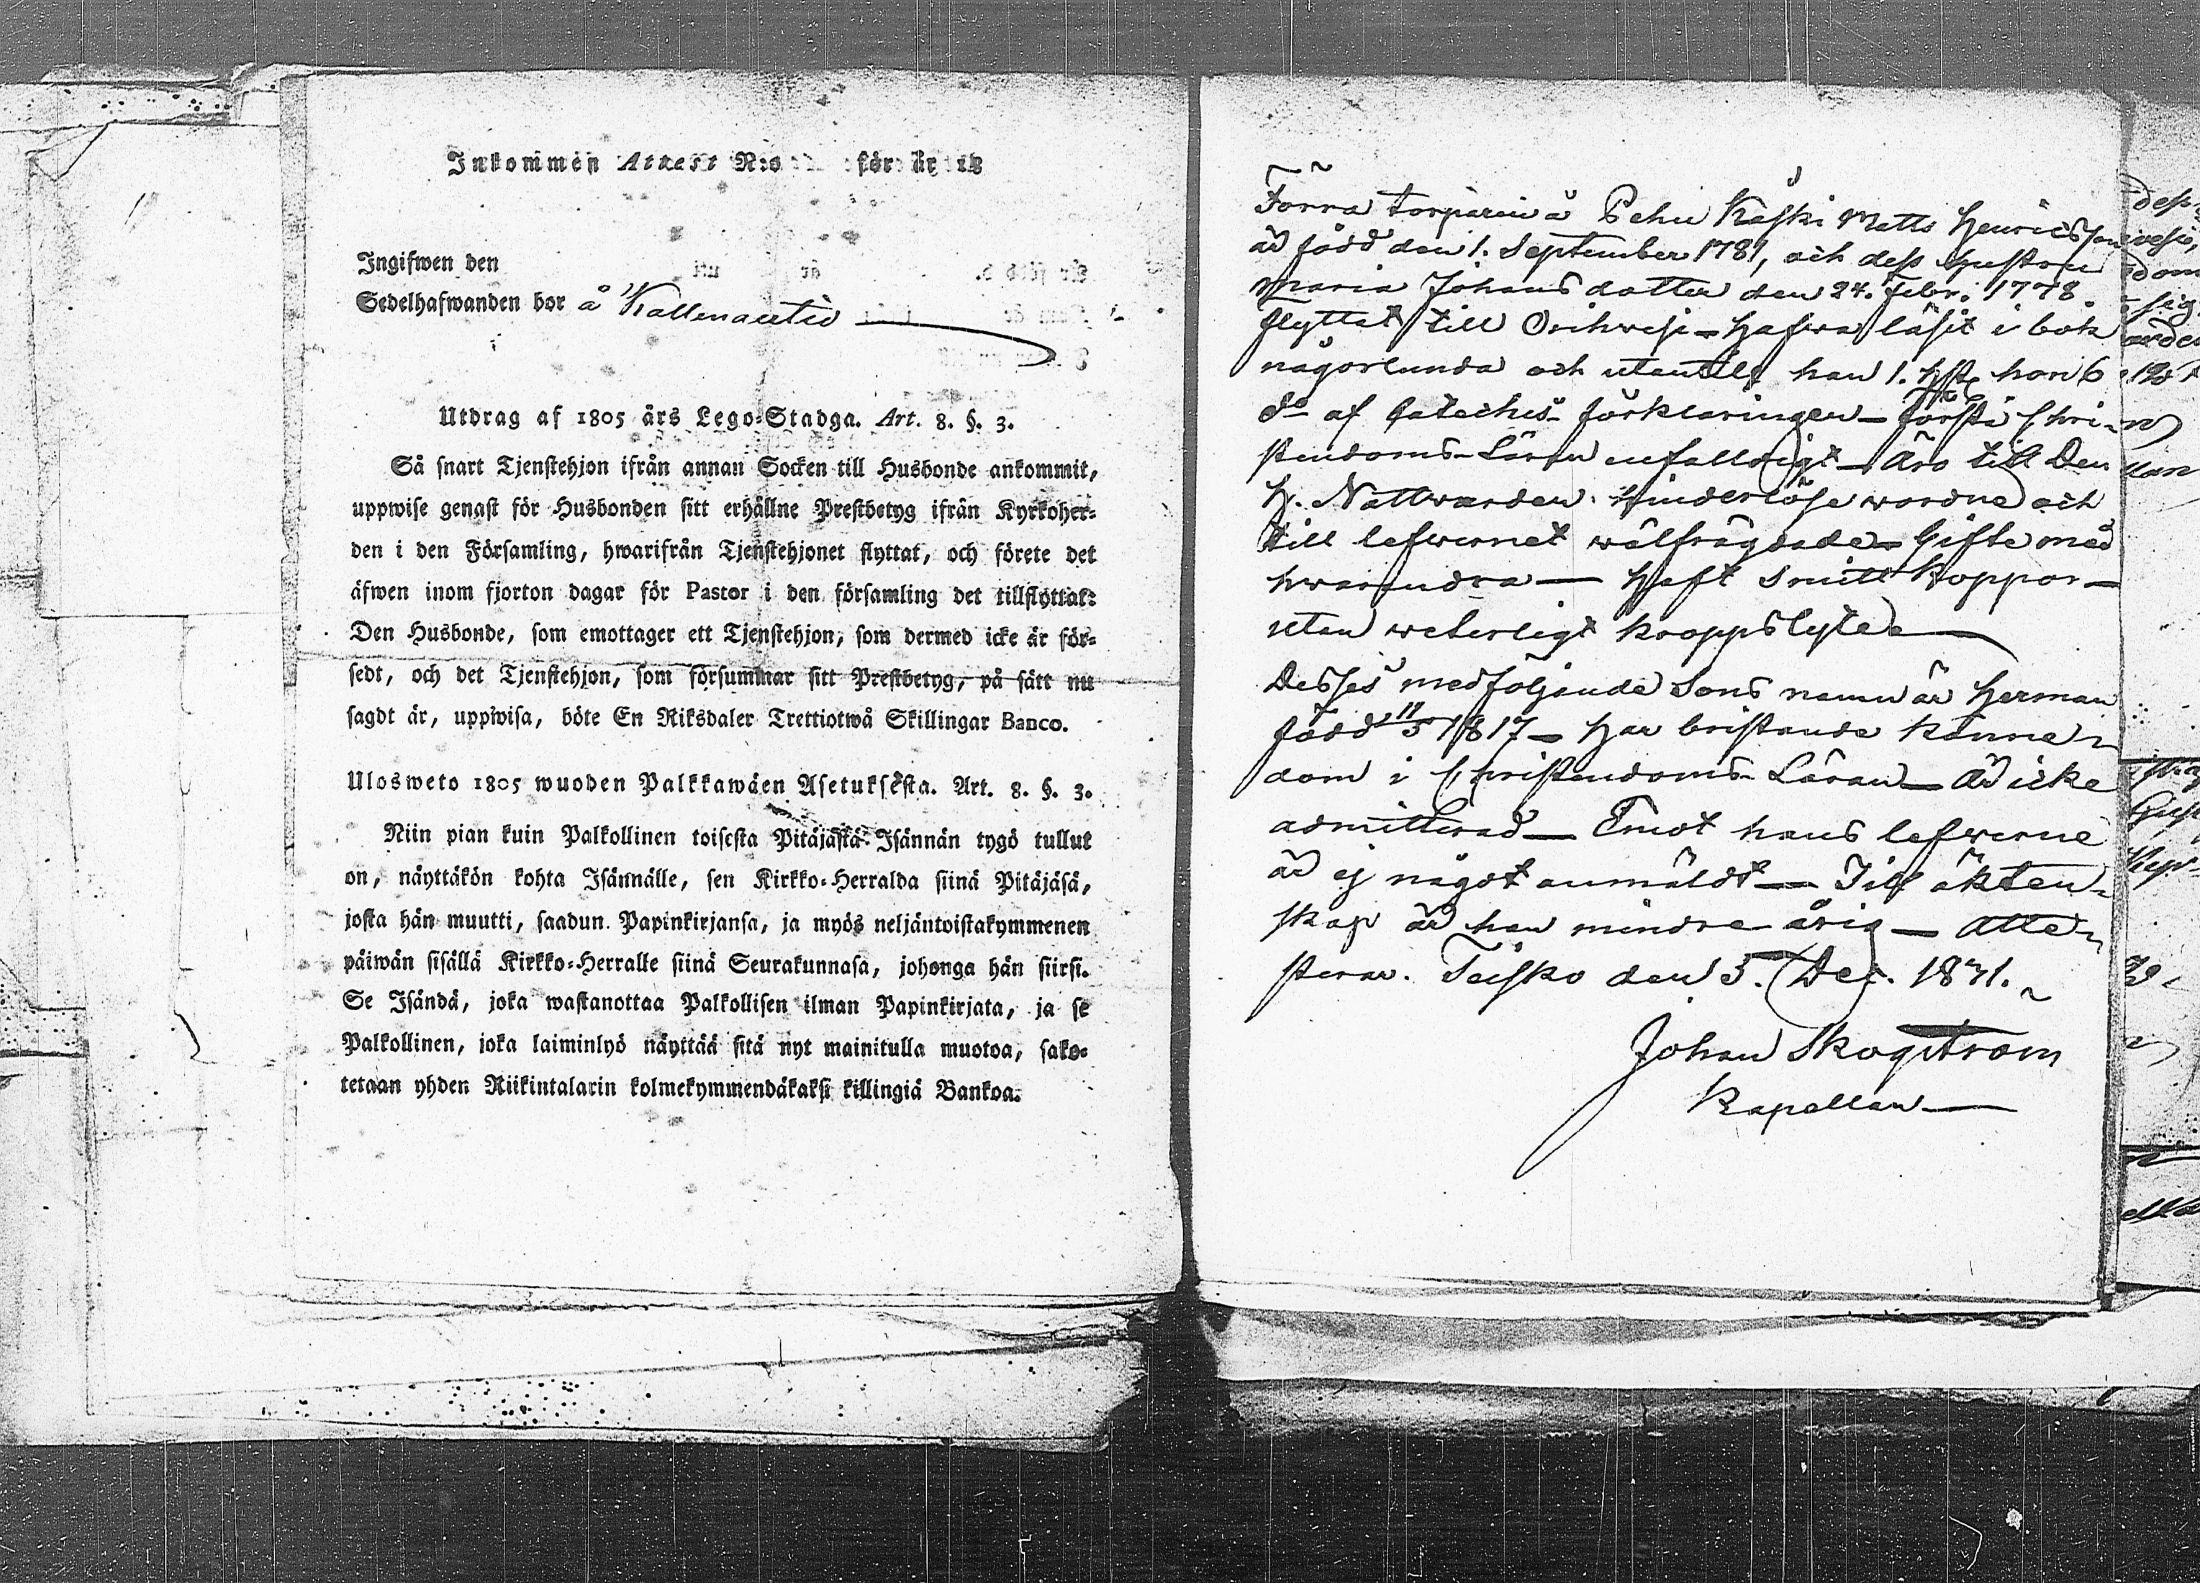 Inkommen Attest N:o för år 18
Ingifwen den
Sedelhafwanden bor å Kallenautio
Utdrag af 1805 års Lego-Stadga. Art. 8. §. 3.
Så snart Tjenstehjon ifrån annan Socken till Husbonde ankommit,
uppwise genast för Husbonden sitt erhållne Prestbetyg ifrån Kyrkoher-
den i den Församling, hwarifrån Tjenstehjonet flyttat, och förete det
äfwen inom fjorton dagar för Pastor i den församling det tillflyttat:
Den Husbonde, som emottager ett Tjenstehjon, som dermed icke är för-
sedt, och det Tjenstehjon, som försummar sitt Prestbetyg, på sätt nu
sagdt är, uppwisa, böte En Riksdaler Trettiotwå Skillingar Banco.
Ulosweto 1805 wuoden Palkkawäen Asetuksesta. Art. 8. §. 3.
Niin pian kuin Palkollinen toisesta Pitäjästä Isännän tygö tullut
on, näyttäkön kohta Isännälle, sen Kirkko-Herralda siinä Pitäjäsä,
josta hän muutti, saadun Papinkirjansa, ja myös neljäntoistakymmenen
päiwän sisällä Kirkko-Herralle siinä Seurakunnasa, johonga hän siirsi.
Se Isändä, joka wastanottaa Palkollisen ilman Papinkirjata, ja se
Palkollinen, joka laiminlyö näyttää sitä nyt mainitulla muotoa, sako-
tetaan yhden Riikintalarin kolmekymmendäkaksi killingiä Bankoa.
Förra torparen å Pehu Käski Matts Henricsson
är född den 1. September 1781, och dess hustru
Maria Johansdotter den 24. Febr. 1778.
flyttat till Orihwesi – Hafwa läsit i bok
någorlunda och utantill han 1. hon 6
do af Cateches förklaringen – förstå Chri-
stendoms-Läran enfalldigt – Äro till Den
H. Nattwarden hinderlöse wordne och
till lefwernet wälfrägdade – Gifte med
hwarandra — Haft Smittkoppor —
utan weterligt kroppslyte —
Desses medföljande Sons namn är Herman
född 11/5 1817 – Har bristande känne-
dom i Christendoms-Läran — Är icke
admitterad — Emot hans lefwerne
är ej något anmäldt — Till äkten-
skap är han minderårig — Atte-
sterar. Teisko den 5. Dec. 1831.
Johan Skogström
Kapellan —